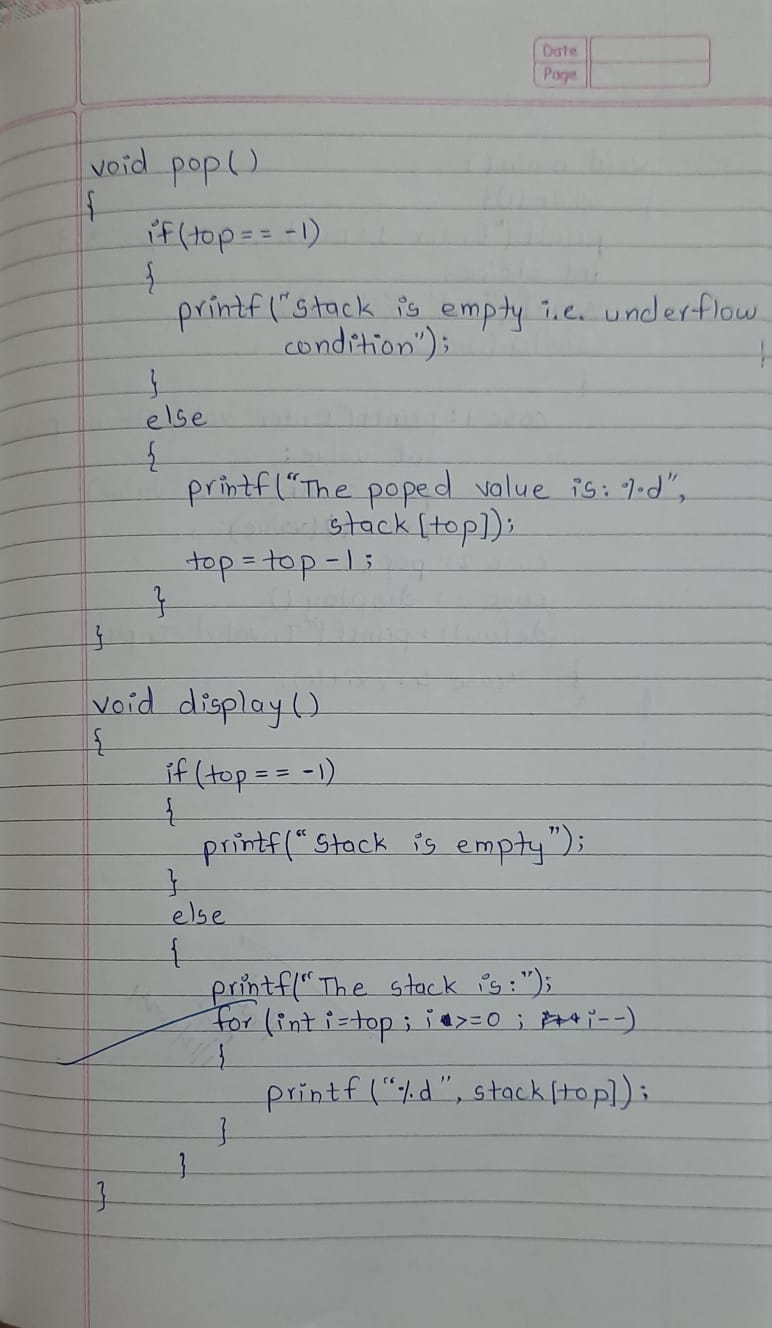 Date
Page
void pop()
{
if(top== -1)
{
printf("stack is empty i.e. underflow
condition");
}
else
{
printf("The poped value is: %d",
stack[top]);
top=top-1;
}
}
void display()
{
if(top== -1)
{
printf("Stack is empty");
}
else
{
printf("The stack is:");
for (int i=top; i>=0; i--)
{
printf("%d", stack[top]);
}
}
}